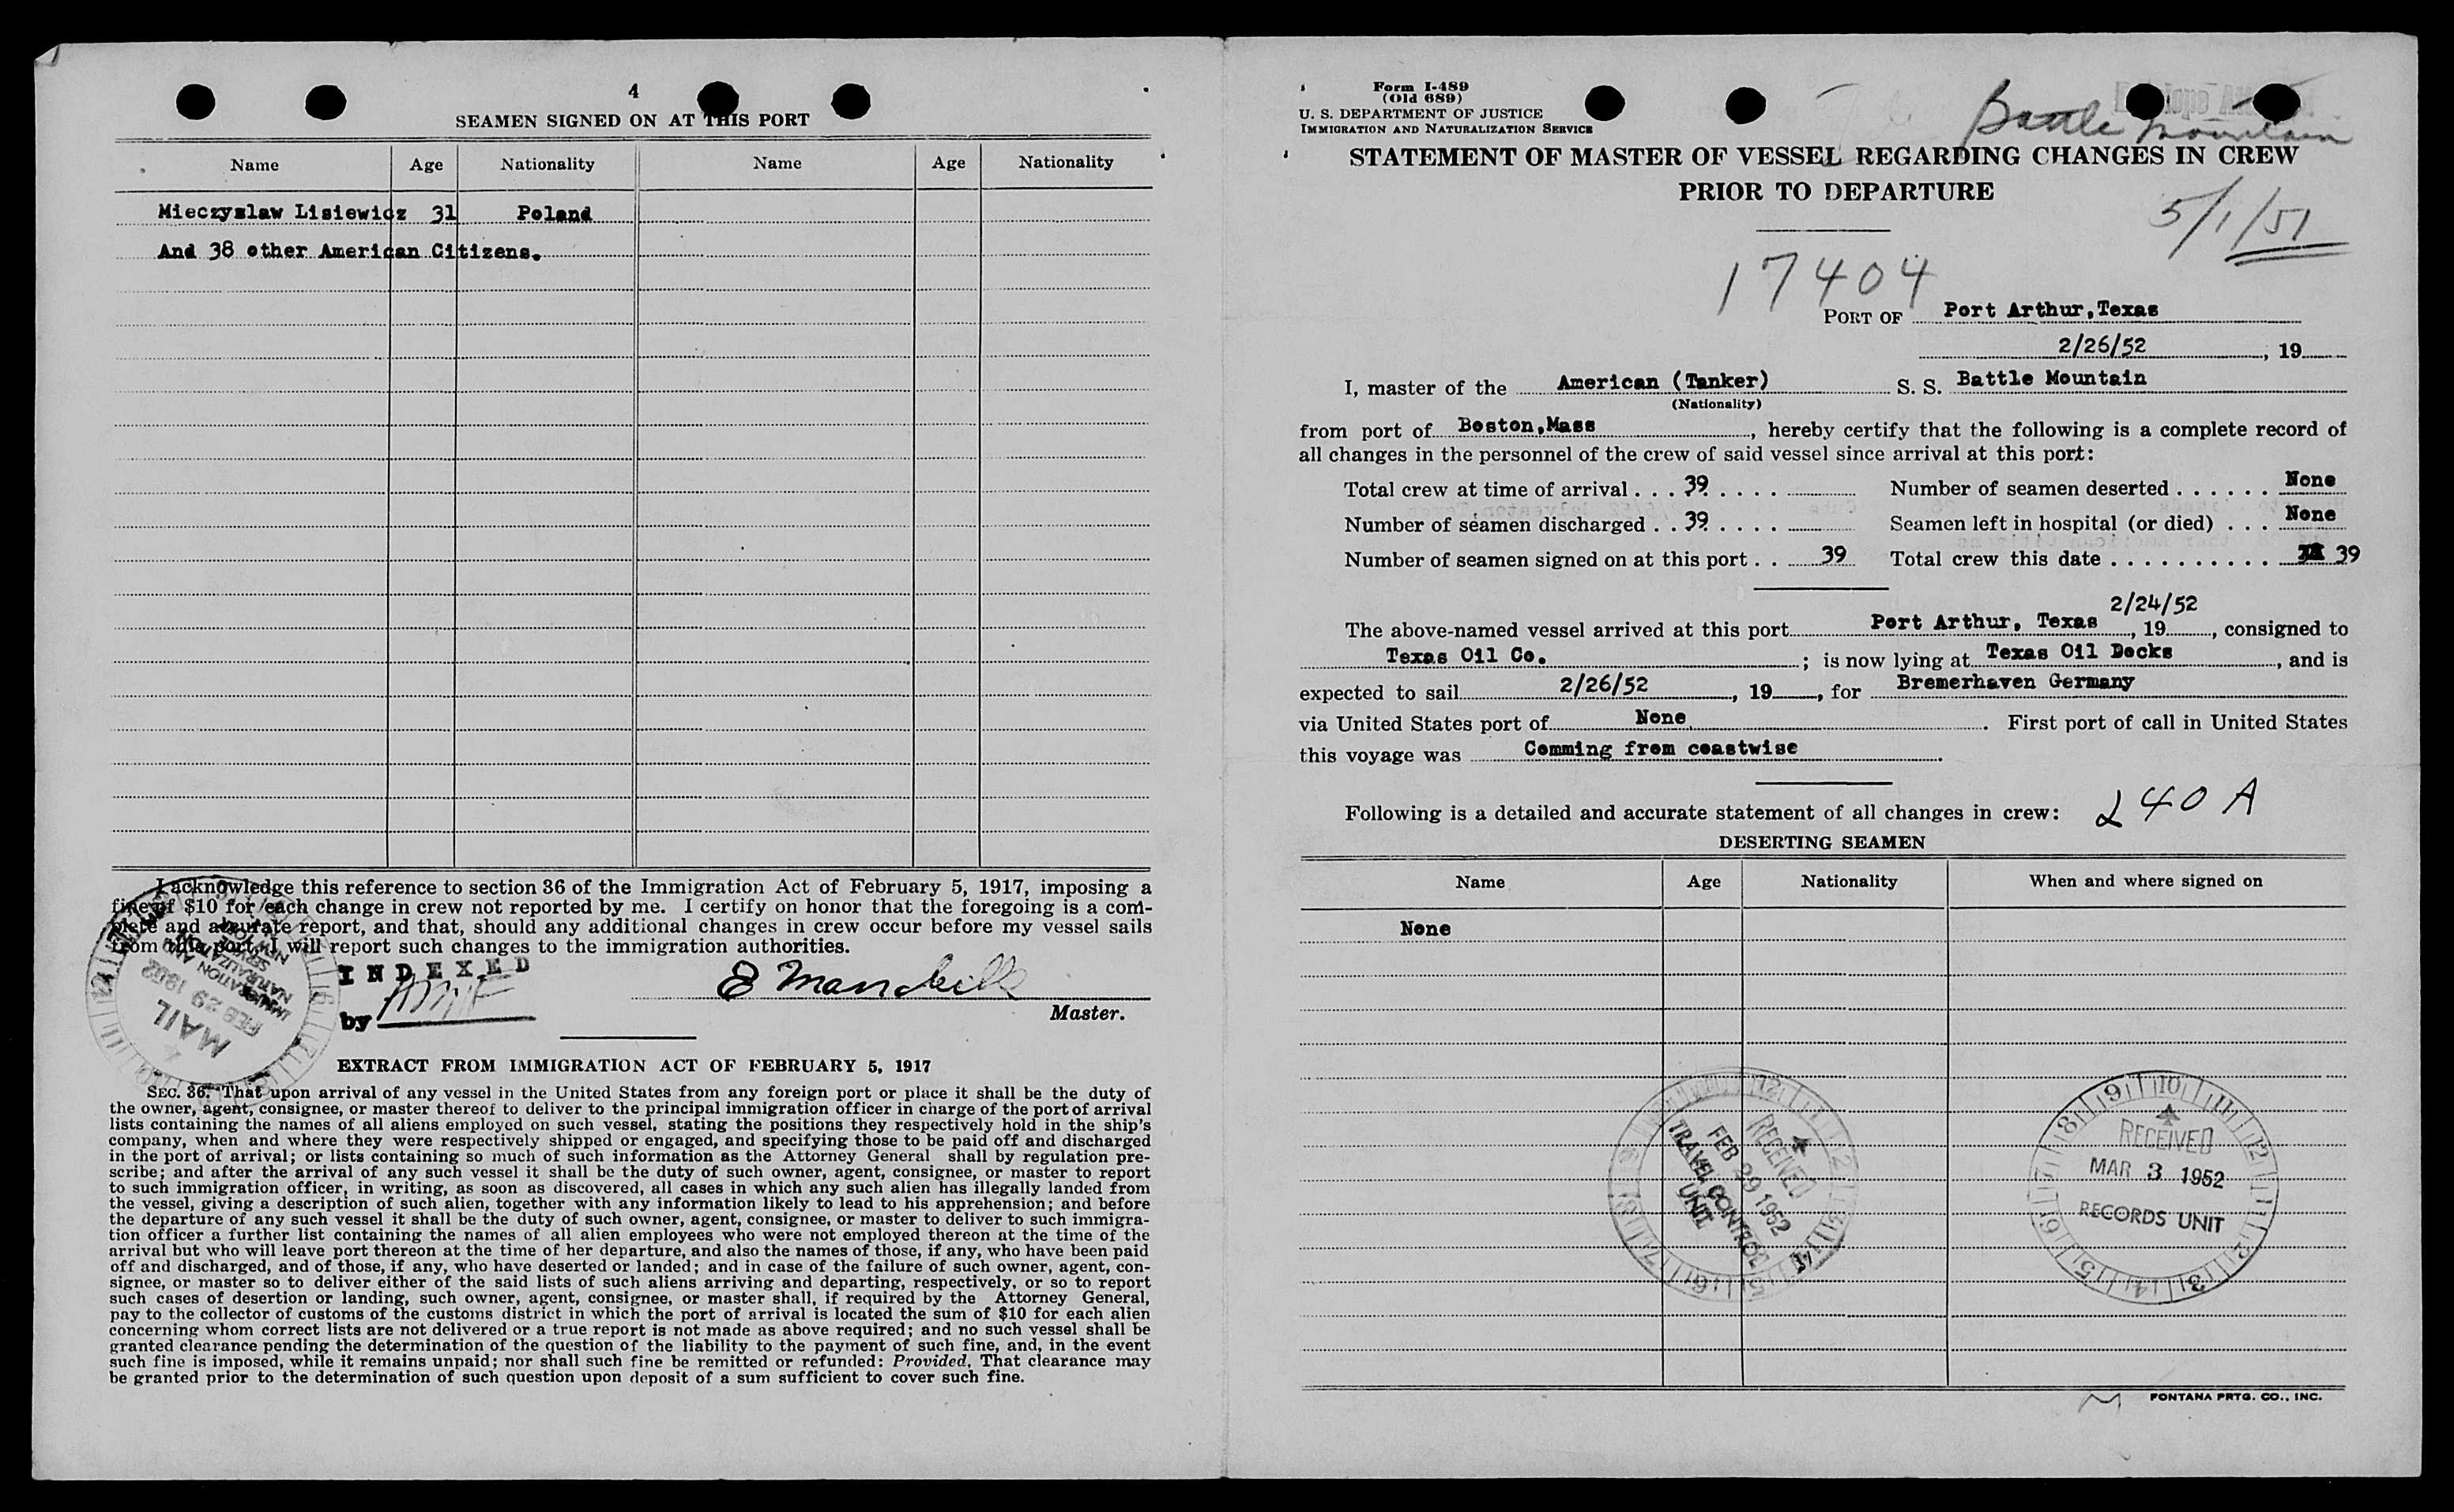 4
SEAMEN SIGNED ON AT THIS PORT
Name Age Nationality Name Age Nationality
Mieczyslaw Lisiewicz 31 Poland
And 38 other American Citizens.
I acknowledge this reference to section 36 of the Immigration Act of February 5, 1917, imposing a
fine of $10 for each change in crew not reported by me. I certify on honor that the foregoing is a com-
plete and accurate report, and that, should any additional changes in crew occur before my vessel sails
from this port, I will report such changes to the immigration authorities.
INDEXED
by
Master.
MAIL
FEB 29 1952
IMMIGRATION AND
NATURALIZATION
SERVICE
NEW YORK
EXTRACT FROM IMMIGRATION ACT OF FEBRUARY 5, 1917
SEC. 36. That upon arrival of any vessel in the United States from any foreign port or place it shall be the duty of
the owner, agent, consignee, or master thereof to deliver to the principal immigration officer in charge of the port of arrival
lists containing the names of all aliens employed on such vessel, stating the positions they respectively hold in the ship's
company, when and where they were respectively shipped or engaged, and specifying those to be paid off and discharged
in the port of arrival; or lists containing so much of such information as the Attorney General shall by regulation pre-
scribe; and after the arrival of any such vessel it shall be the duty of such owner, agent, consignee, or master to report
to such immigration officer, in writing, as soon as discovered, all cases in which any such alien has illegally landed from
the vessel, giving a description of such alien, together with any information likely to lead to his apprehension; and before
the departure of any such vessel it shall be the duty of such owner, agent, consignee, or master to deliver to such immigra-
tion officer a further list containing the names of all alien employees who were not employed thereon at the time of the
arrival but who will leave port thereon at the time of her departure, and also the names of those, if any, who have been paid
off and discharged, and of those, if any, who have deserted or landed; and in case of the failure of such owner, agent, con-
signee, or master so to deliver either of the said lists of such aliens arriving and departing, respectively, or so to report
such cases of desertion or landing, such owner, agent, consignee, or master shall, if required by the Attorney General,
pay to the collector of customs of the customs district in which the port of arrival is located the sum of $10 for each alien
concerning whom correct lists are not delivered or a true report is not made as above required; and no such vessel shall be
granted clearance pending the determination of the question of the liability to the payment of such fine, and, in the event
such fine is imposed, while it remains unpaid; nor shall such fine be remitted or refunded: Provided, That clearance may
be granted prior to the determination of such question upon deposit of a sum sufficient to cover such fine.
Form I-489
(Old 689)
U. S. DEPARTMENT OF JUSTICE
IMMIGRATION AND NATURALIZATION SERVICE
Battle Mountain
STATEMENT OF MASTER OF VESSEL REGARDING CHANGES IN CREW
PRIOR TO DEPARTURE
5/1/51
17404
PORT OF Port Arthur, Texas
2/26/52, 19
I, master of the American (Tanker) S. S. Battle Mountain
(Nationality)
from port of Boston, Mass, hereby certify that the following is a complete record of
all changes in the personnel of the crew of said vessel since arrival at this port:
Total crew at time of arrival . . . 39 . . . . Number of seamen deserted . . . . . . None
Number of seamen discharged . . 39 . . . . Seamen left in hospital (or died) . . . None
Number of seamen signed on at this port . . 39 Total crew this date . . . . . . . . . . 39
2/24/52
The above-named vessel arrived at this port Port Arthur, Texas, 19, consigned to
Texas Oil Co.; is now lying at Texas Oil Docks, and is
expected to sail 2/26/52, 19, for Bremerhaven Germany
via United States port of None. First port of call in United States
this voyage was Comming from coastwise.
Following is a detailed and accurate statement of all changes in crew: 240 A
DESERTING SEAMEN
Name Age Nationality When and where signed on
None
RECEIVED
FEB 29 1952
TRAVEL CONTROL
UNIT
RECEIVED
MAR 3 1952
RECORDS UNIT
FONTANA PRTG. CO., INC.